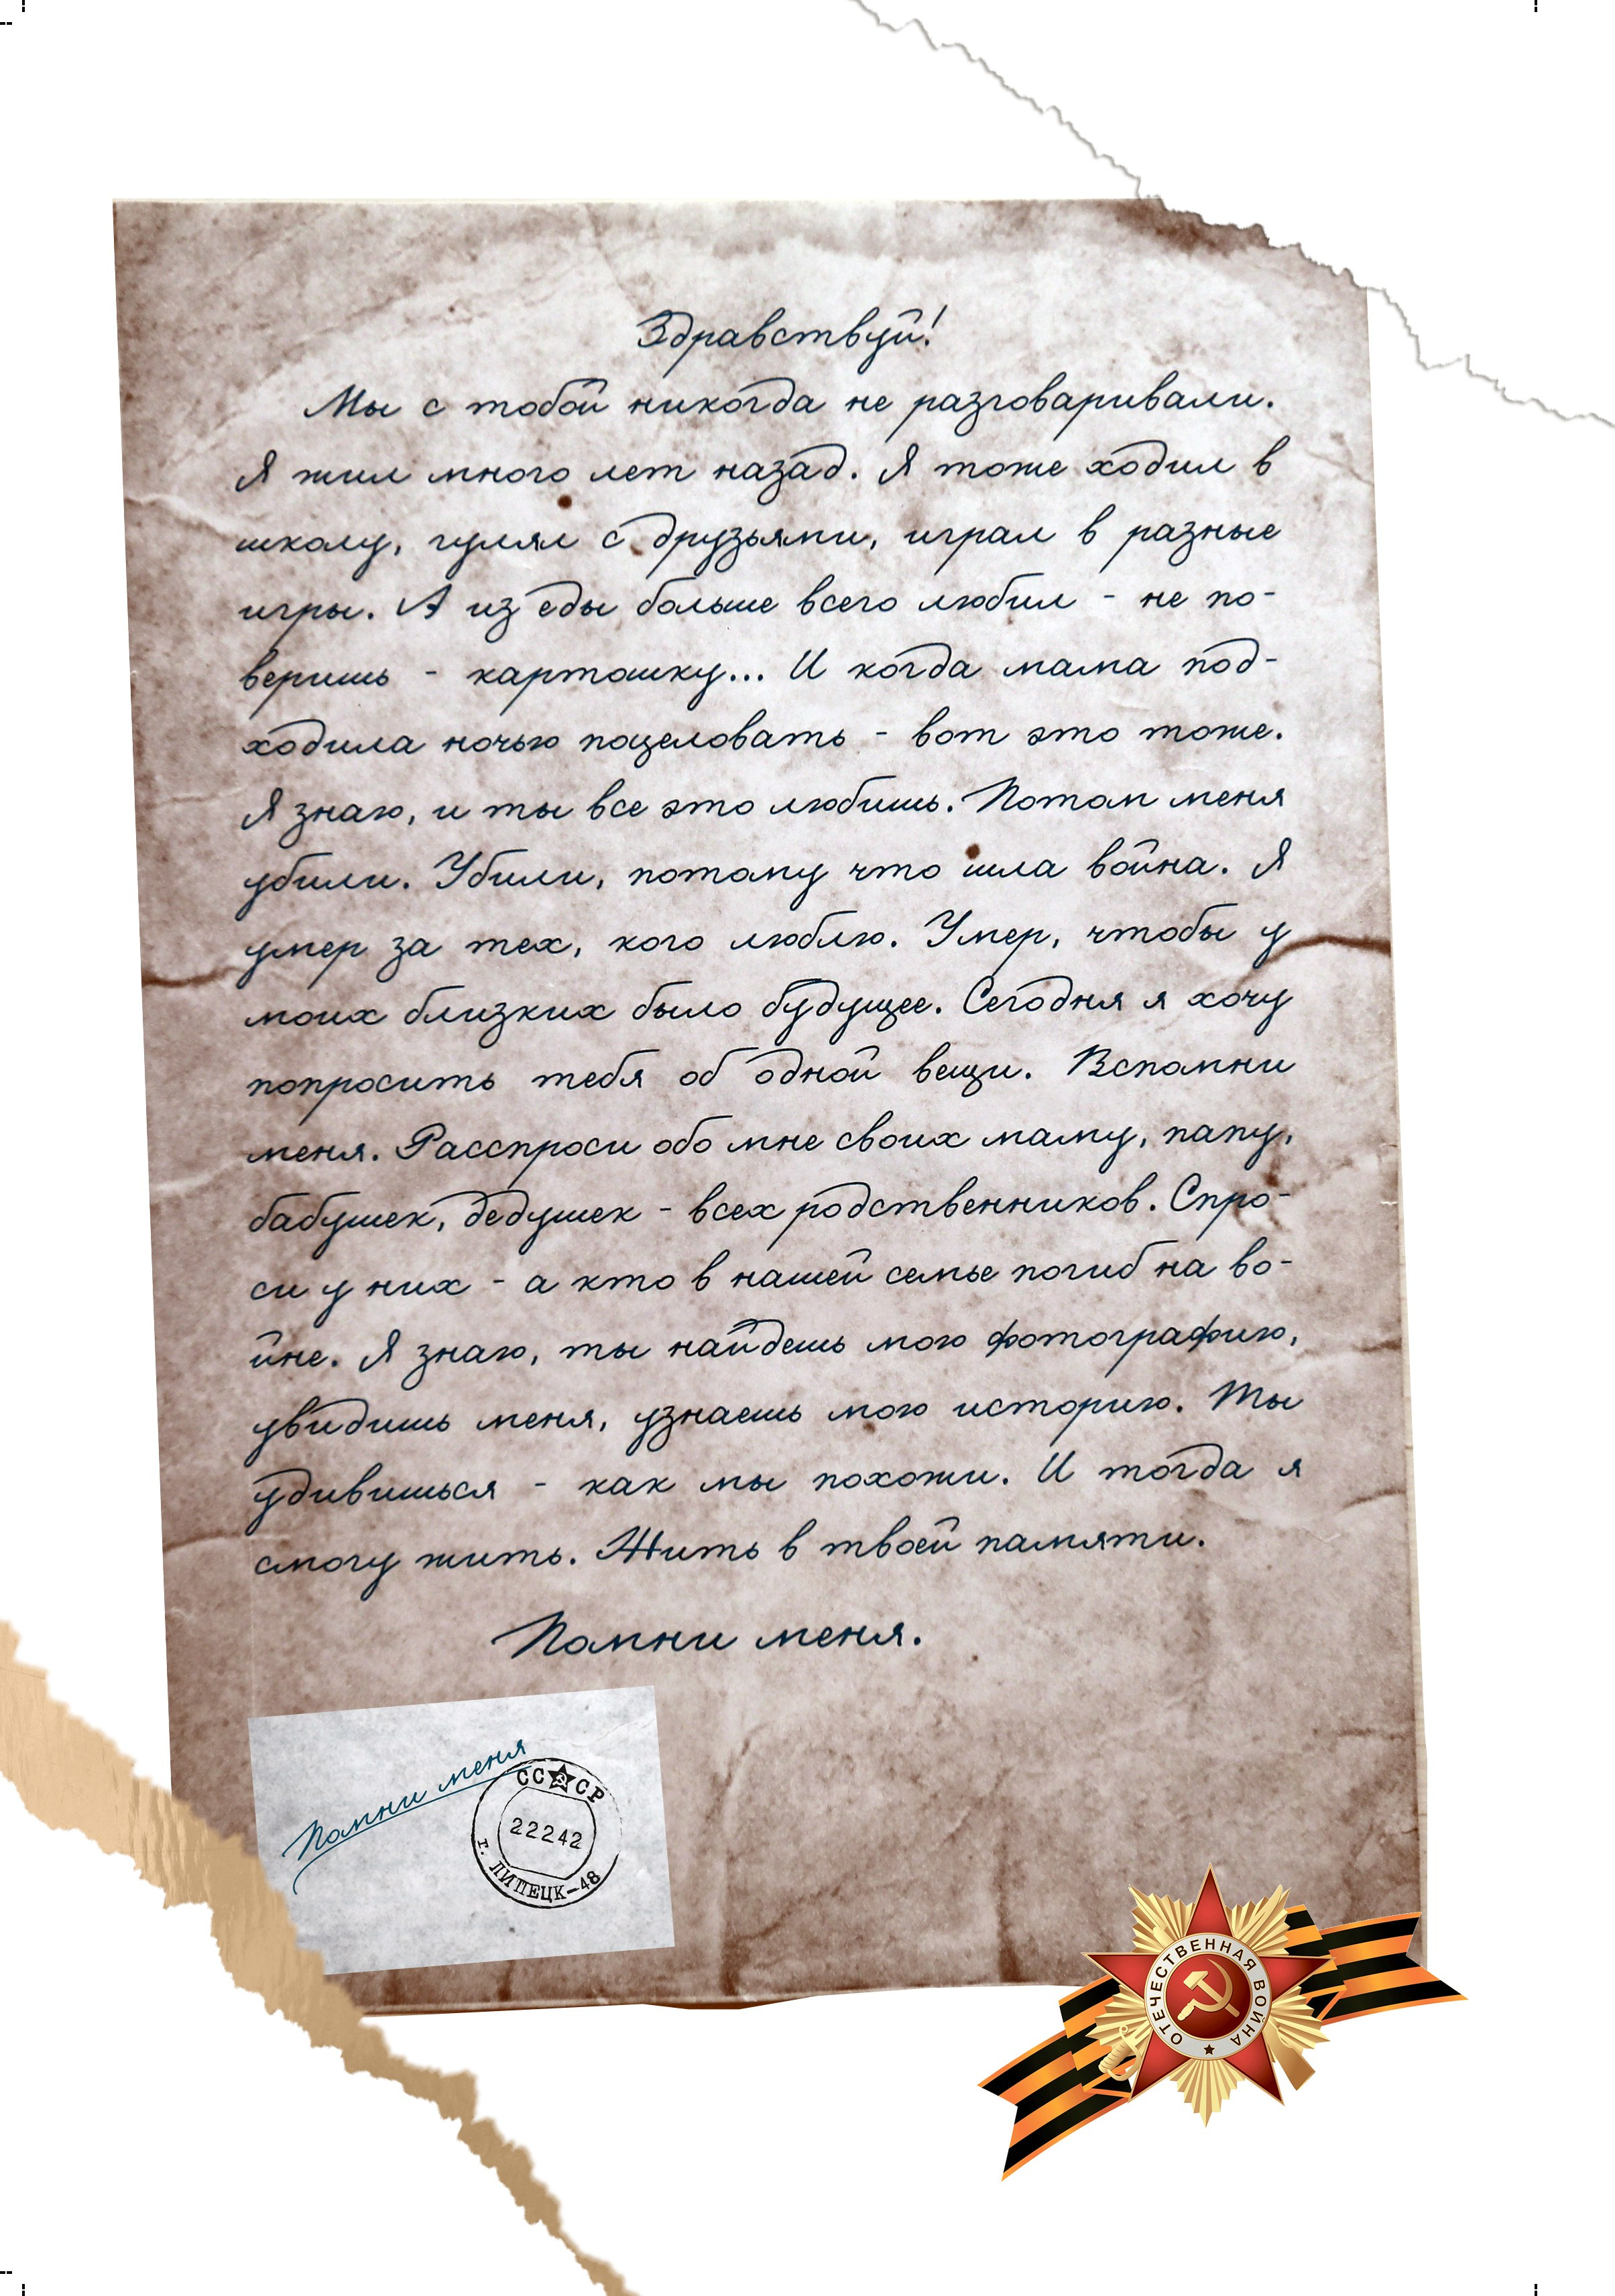 Здравствуй!
Мы с тобой никогда не разговаривали.
Я жил много лет назад. Я тоже ходил в
школу, гулял с друзьями, играл в разные
игры. А из еды больше всего любил - не по-
веришь - картошку... И когда мама под-
ходила ночью поцеловать - вот это тоже.
Я знаю, и ты все это любишь. Потом меня
убили. Убили, потому что шла война. Я
умер за тех, кого люблю. Умер, чтобы у
моих близких было будущее. Сегодня я хочу
попросить тебя об одной вещи. Вспомни
меня. Расспроси обо мне своих маму, папу,
бабушек, дедушек - всех родственников. Спро-
си у них - а кто в нашей семье погиб на во-
йне. Я знаю, ты найдешь мою фотографию,
увидишь меня, узнаешь мою историю. Ты
удивишься - как мы похожи. И тогда я
смогу жить. Жить в твоей памяти.
Помни меня.
Помни меня
СССР
22242
г. ЛИПЕЦК-48
ОТЕЧЕСТВЕННАЯ ВОЙНА